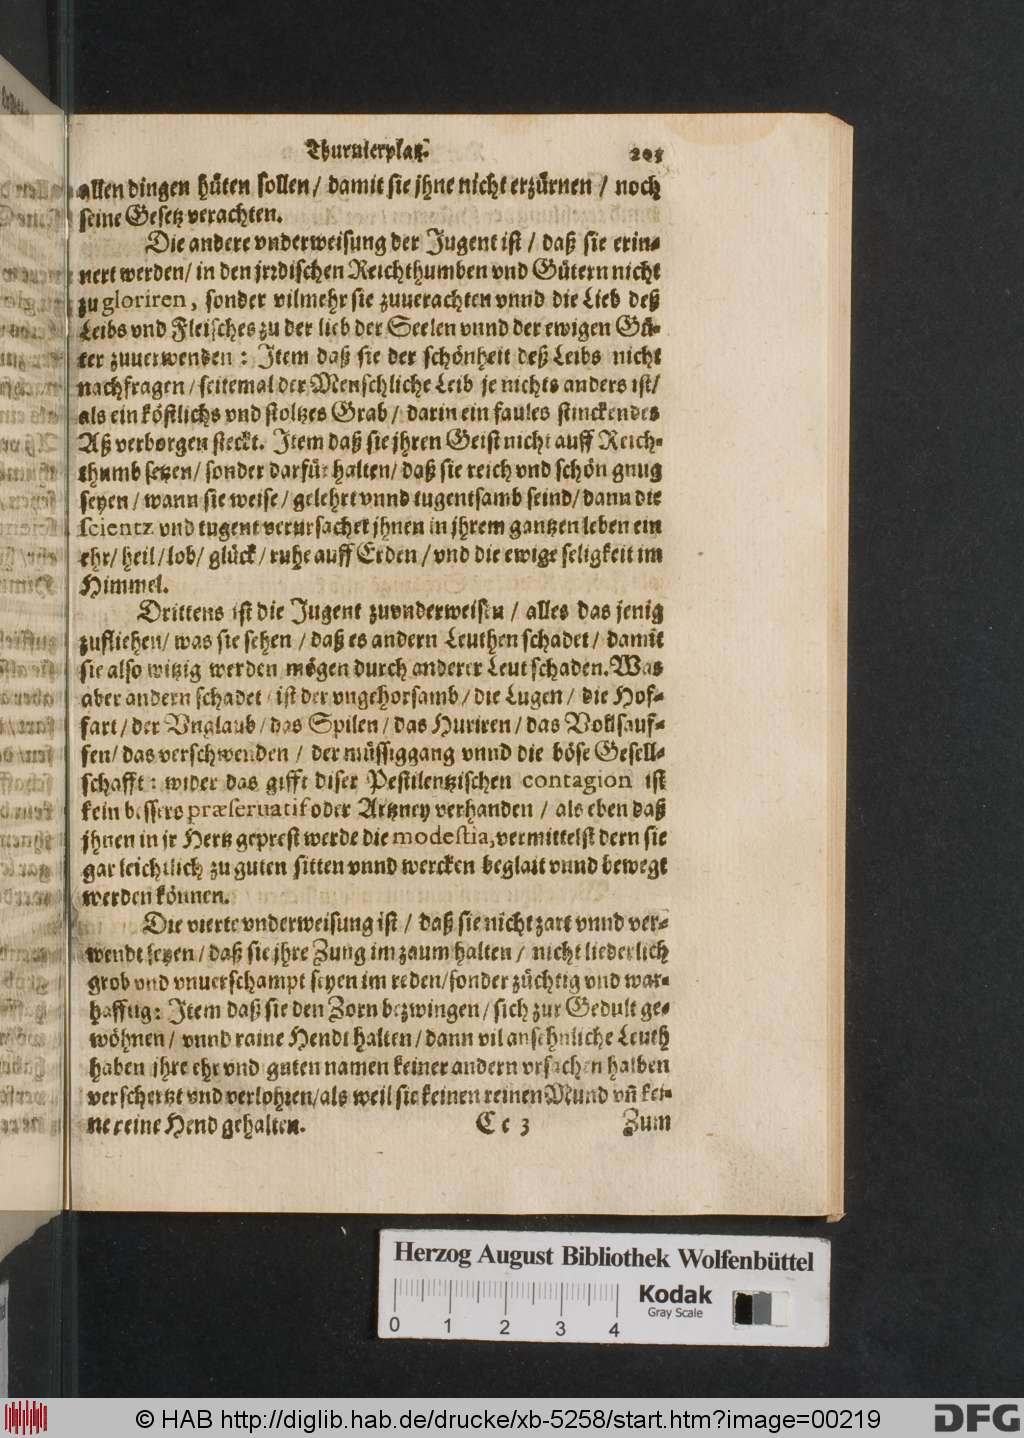 Thurnierplatz. 205
allen dingen hüten sollen / damit sie jhne nicht erzürnen / noch
seine Gesetz verachten.
Die andere vnderweisung der Jugent ist / daß sie erin-
nert werden / in den jrrdischen Reichthumben vnd Gütern nicht
zu gloriren, sonder vilmehr sie zuuerachten vnnd die Lieb deß
Leibs vnd Fleisches zu der lieb der Seelen vnnd der ewigen Gü-
ter zuuerwenden : Item daß sie der schönheit deß Leibs nicht
nachfragen / seitemal der Menschliche Leib je nichts anders ist /
als ein köstlichs vnd stoltzes Grab / darin ein faules stinckendes
Aß verborgen steckt. Item daß sie jhren Geist nicht auff Reich-
thumb setzen / sonder darfür halten / daß sie reich vnd schön gnug
seyen / wann sie weise / gelehrt vnnd tugentsamb seind / dann die
scientz vnd tugent verursachet jhnen in jhrem gantzen leben ein
ehr / heil / lob / glück / ruhe auff Erden / vnd die ewige seligkeit im
Himmel.
Drittens ist die Jugent zuvnderweisen / alles das jenig
zufliehen / was sie sehen / daß es andern Leuthen schadet / damit
sie also witzig werden mögen durch anderer Leut schaden. Was
aber andern schadet / ist der vngehorsamb / die Lugen / die Hof-
fart / der Vnglaub / das Spilen / das Huriren / das Vollsauf-
fen / das verschwenden / der müssiggang vnnd die böse Gesell-
schafft : wider das gifft diser Pestilentzischen contagion ist
kein bessers præseruatif oder Artzney verhanden / als eben daß
jhnen in jr Hertz geprest werde die modestia, vermittelst dern sie
gar leichtlich zu guten sitten vnnd wercken beglait vnnd bewegt
werden können.
Die vierte vnderweisung ist / daß sie nicht zart vnnd ver-
wendt seyen / daß sie jhre Zung im zaum halten / nicht liederlich
grob vnd vnuerschampt seyen im reden / sonder züchtig vnd war-
hafftig : Item daß sie den Zorn bezwingen / sich zur Gedult ge-
wöhnen / vnnd raine Hendt halten / dann vil ansehnliche Leuth
haben jhre ehr vnd guten namen keiner andern vrsachen halben
verschertzt vnd verlohren / als weil sie keinen reinen Mund vñ kei-
ne reine Hend gehalten.
Cc 3 Zum
Herzog August Bibliothek Wolfenbüttel
0 1 2 3 4
Kodak
Gray Scale
© HAB http://diglib.hab.de/drucke/xb-5258/start.htm?image=00219
DFG